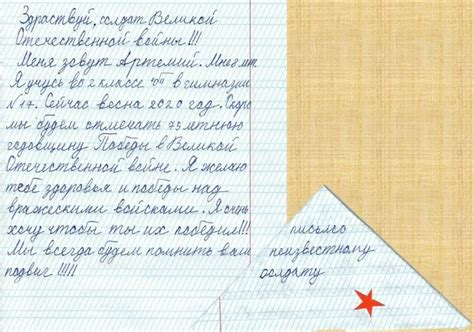 Здраствуй, солдат Великой
Отечественной войны!!!
Меня зовут Артемий. Мне лет
Я учусь во 2 классе в гимназии
№17. Сейчас весна 2020 год. Скоро
мы будем отмечать 75 летнюю
годовщину Победы в Великой
Отечественной войне. Я желаю
тебе здоровья и победы над
вражескими войсками. Я очень
хочу чтобы ты их победил!!!
Мы всегда будем помнить ваш
подвиг !!!!!
письмо
неизвестному
солдату